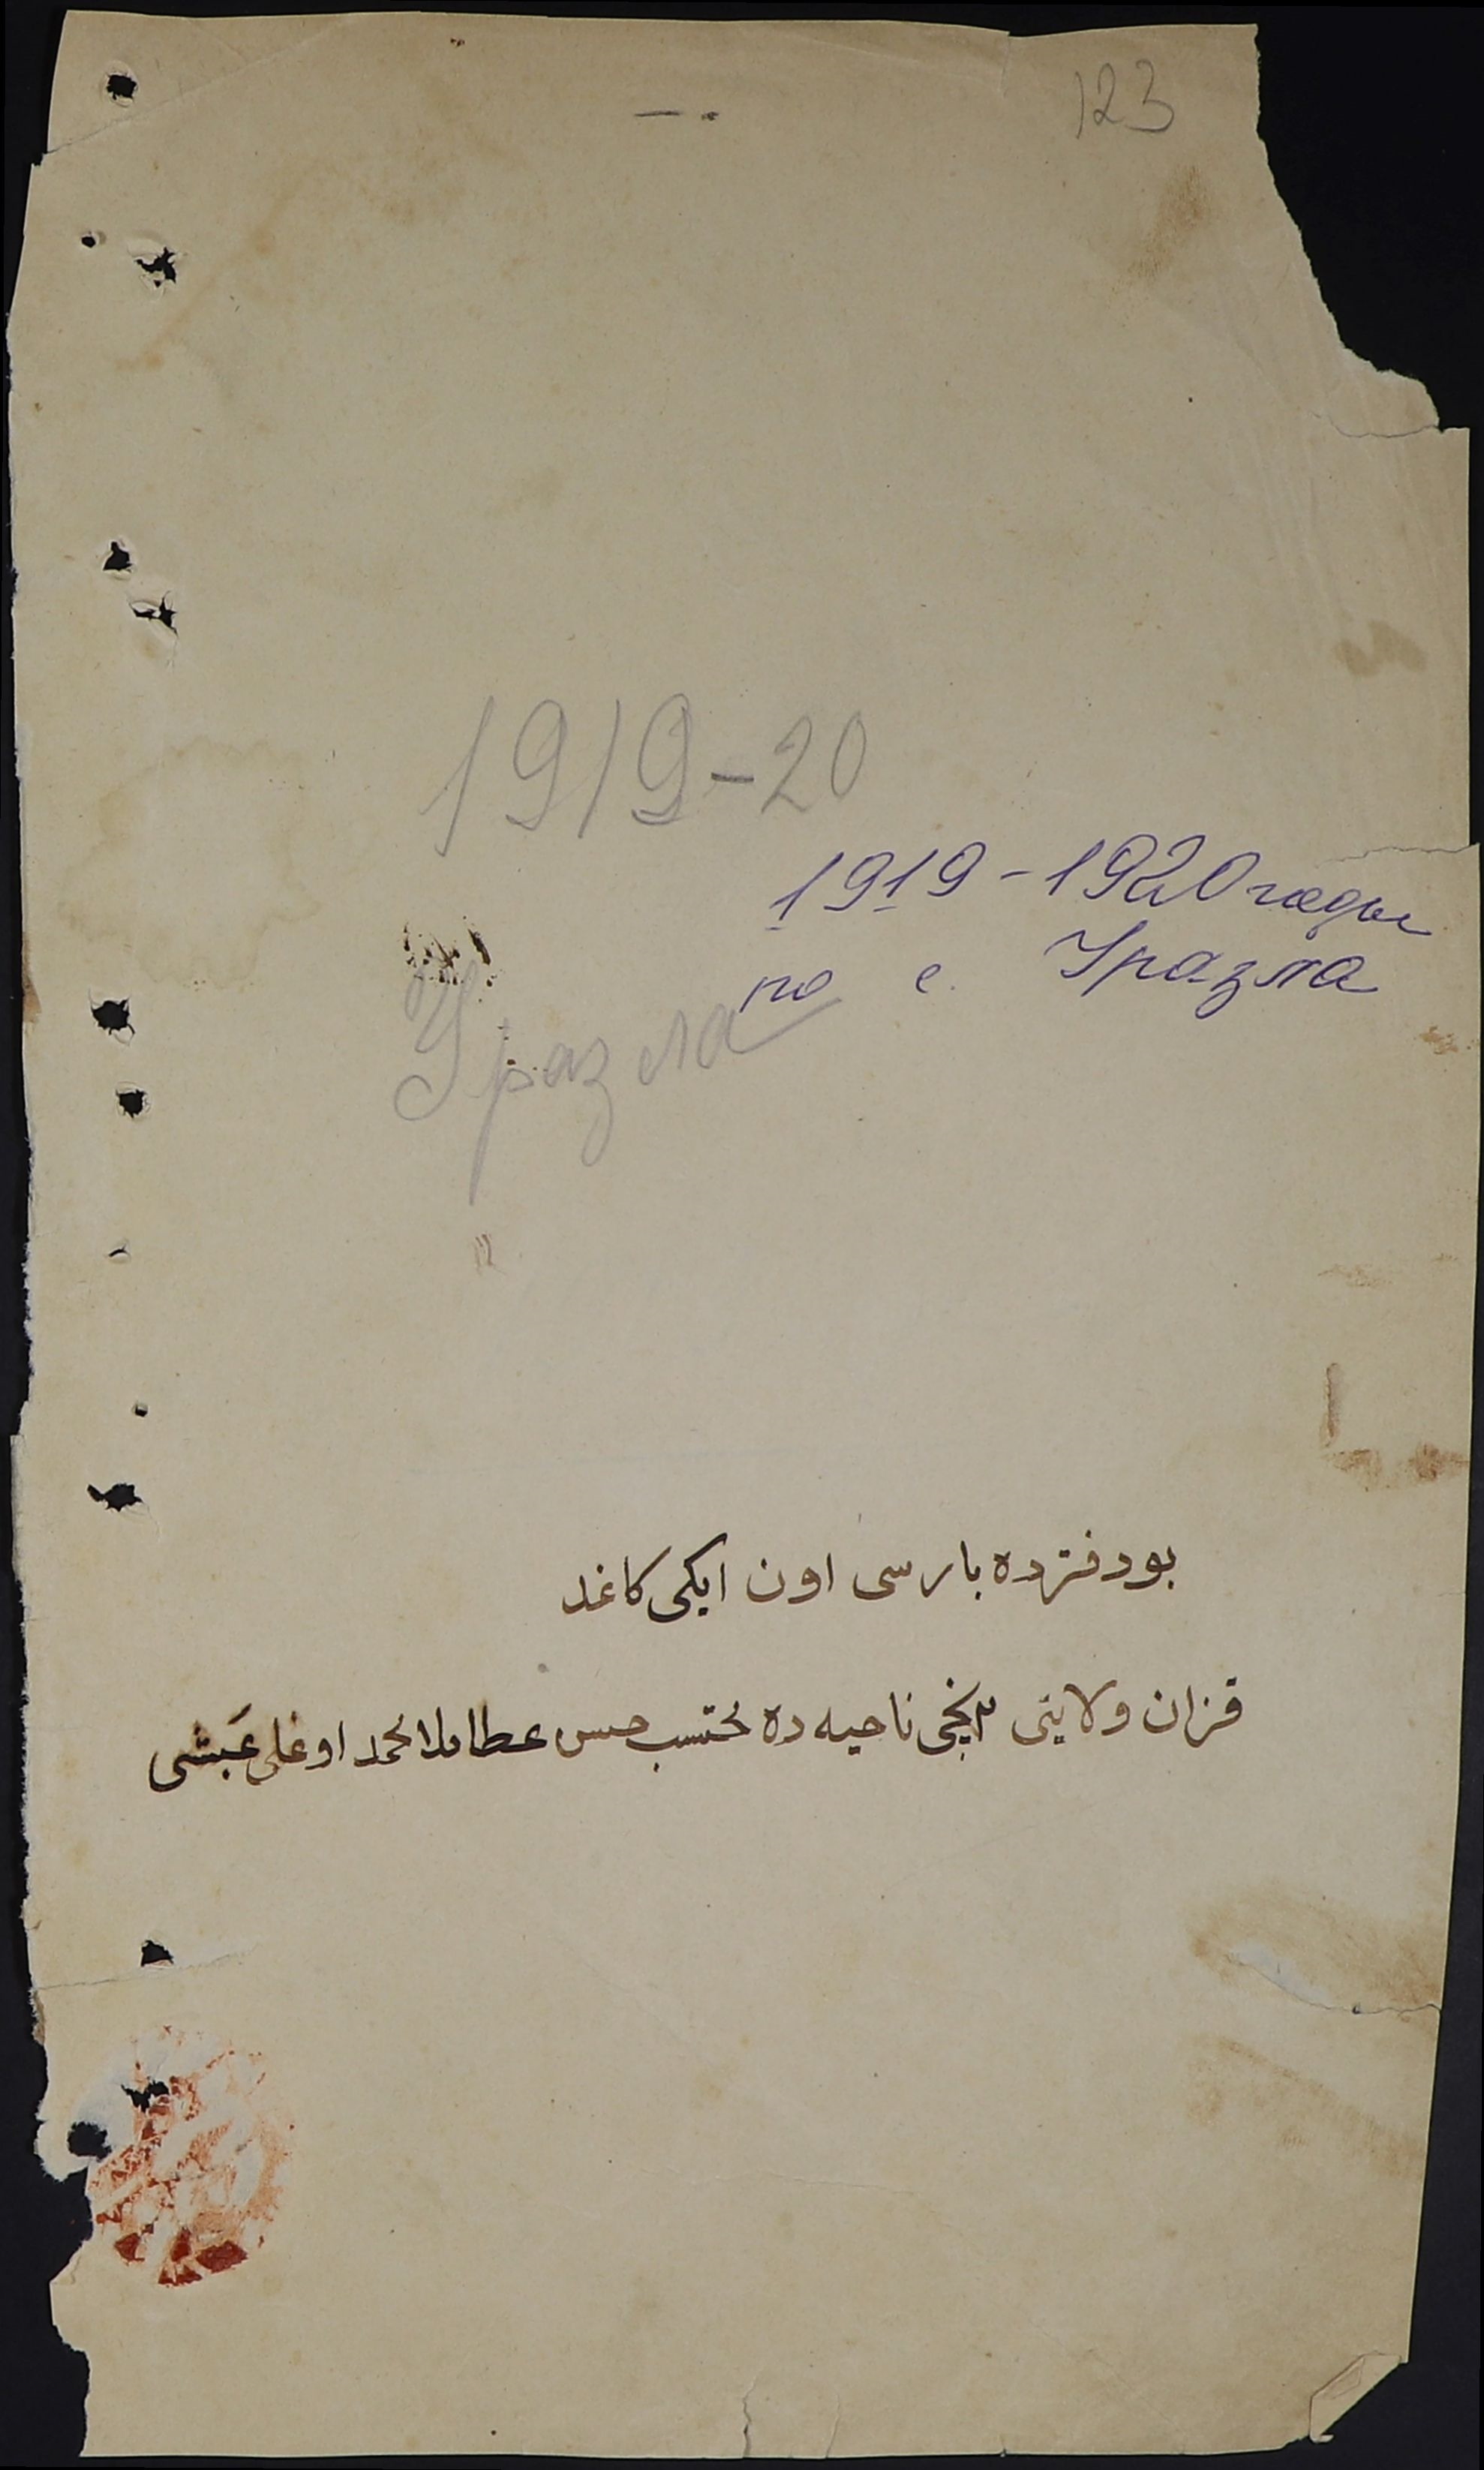 123
1919-20
1919-1920 годы
по с. Уразла
Уразла
بو دفترده بارسی اون ایکی کاغد
قزان ولایتی ٣نچی ناحیه ده محتسب حسن عطا ملا محمد اوغلی عبشی